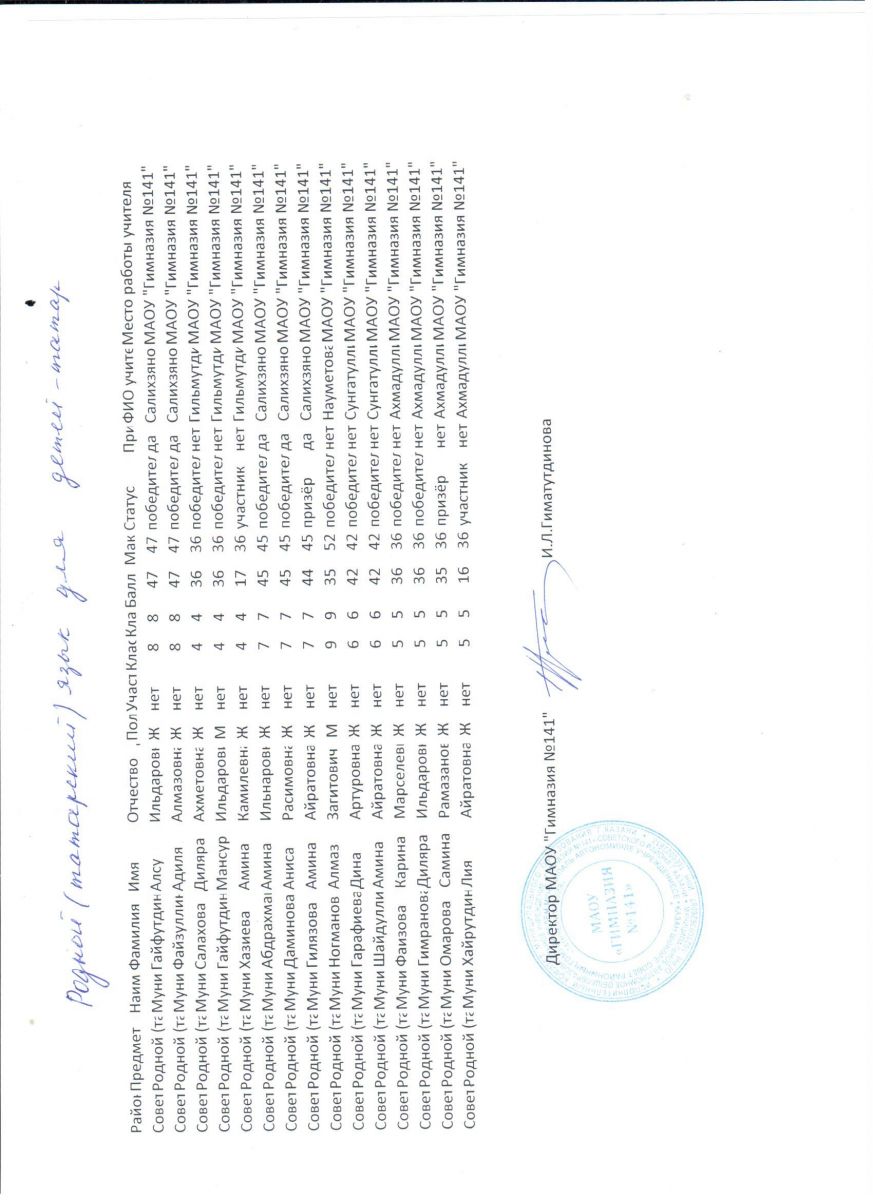 Родной (татарский) язык для детей-татар
Район Предмет Наим Фамилия Имя Отчество , Пол Участ Клас Кла Балл Мак Статус При ФИО учите Место работы учителя
Совет Родной (та Муни Гайфутдин Алсу Ильдарові Ж нет 8 8 47 47 победител да Салихзяно МАОУ "Гимназия №141"
Совет Родной (та Муни Файзуллин Адиля Алмазовна Ж нет 8 8 47 47 победител да Салихзяно МАОУ "Гимназия №141"
Совет Родной (та Муни Салахова Диляра Ахметовна Ж нет 4 4 36 36 победител нет Гильмутди МАОУ "Гимназия №141"
Совет Родной (та Муни Гайфутдин Мансур Ильдарові М нет 4 4 36 36 победител нет Гильмутди МАОУ "Гимназия №141"
Совет Родной (та Муни Хазиева Амина Камилевна Ж нет 4 4 17 36 участник нет Гильмутди МАОУ "Гимназия №141"
Совет Родной (та Муни Абдрахма Амина Ильнарові Ж нет 7 7 45 45 победител да Салихзяно МАОУ "Гимназия №141"
Совет Родной (та Муни Даминова Аниса Расимовна Ж нет 7 7 45 45 победител да Салихзяно МАОУ "Гимназия №141"
Совет Родной (та Муни Гилязова Амина Айратовна Ж нет 7 7 44 45 призёр да Салихзяно МАОУ "Гимназия №141"
Совет Родной (та Муни Ногманов Алмаз Загитович М нет 9 9 35 52 победител нет Науметова МАОУ "Гимназия №141"
Совет Родной (та Муни Гарафиева Дина Артуровна Ж нет 6 6 42 42 победител нет Сунгатулл МАОУ "Гимназия №141"
Совет Родной (та Муни Шайдулли Амина Айратовна Ж нет 6 6 42 42 победител нет Сунгатулл МАОУ "Гимназия №141"
Совет Родной (та Муни Фаизова Карина Марселеві Ж нет 5 5 36 36 победител нет Ахмадулл МАОУ "Гимназия №141"
Совет Родной (та Муни Гимранова Диляра Ильдарові Ж нет 5 5 36 36 победител нет Ахмадулл МАОУ "Гимназия №141"
Совет Родной (та Муни Омарова Самина Рамазанов Ж нет 5 5 35 36 призёр нет Ахмадулл МАОУ "Гимназия №141"
Совет Родной (та Муни Хайрутдин Лия Айратовна Ж нет 5 5 16 36 участник нет Ахмадулл МАОУ "Гимназия №141"
Директор МАОУ "Гимназия №141" И.Л.Гиматутдинова
МАОУ
«ГИМНАЗИЯ
№141»